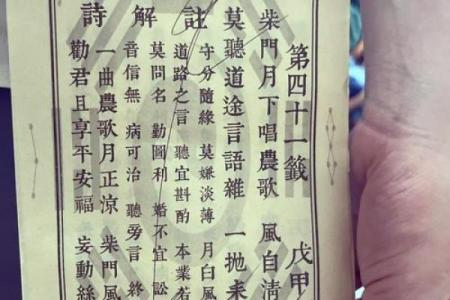 第四十一籤 戊甲
柴門月下唱農歌 風自清
莫聽道途言語雜 一拋耒
註
守分隨緣 莫嫌淡薄 月白風
道路之言 聽宜斟酌 本業若
莫問名 勤圖利 婚不宜 訟
音信無 病可治 聽旁言 終
解
一曲農歌月正涼 柴門風
勸君且享平安福 妄動絲
詩